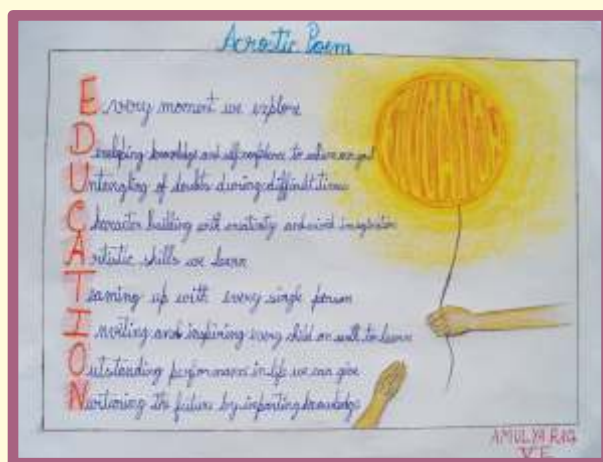 Acrostic Poem
EDUCATION
Every moment we explore
Developing knowledge and self confidence to achieve our goal
Untangling of doubts during difficult times
Character building with creativity and mind imagination
Artistic skills we learn
Teaming up with every single person
Inviting and inspiring every child on will to learn
Outstanding performance in life we can give
Nurturing the future by imparting knowledge
AMULYA RAO
V E